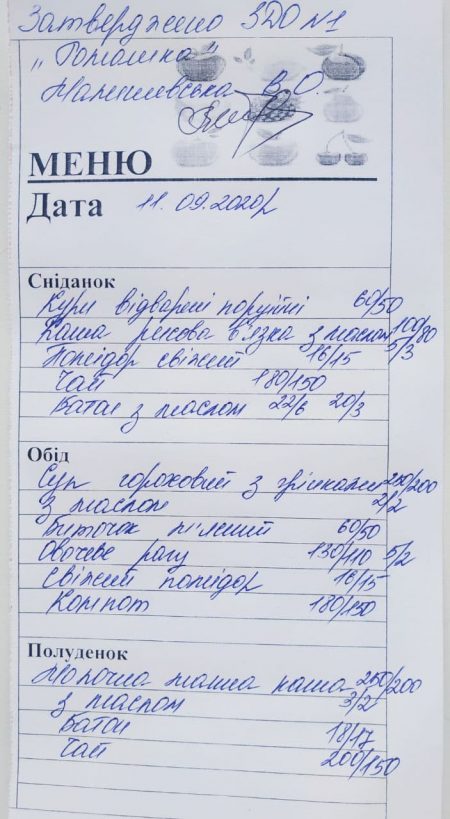 Затверджено ЗДО №1
„Ромашка"
В. О.
МЕНЮ
Дата 11.09.2020р
Сніданок
Кури відварені порційні 60/50
Каша рисова в'язка з маслом 100/80
5/3
Помідор свіжий 16/15
Чай 180/150
Батон з маслом 22/6 20/3
Обід
Суп гороховий з грінками 250/200
з маслом 2/2
Биточок м'ясний 60/50
Овочеве рагу 130/110 5/2
Свіжий помідор 16/15
Компот 180/150
Полуденок
Молочна манна каша 250/200
з маслом 3/2
Батон 18/17
Чай 200/150